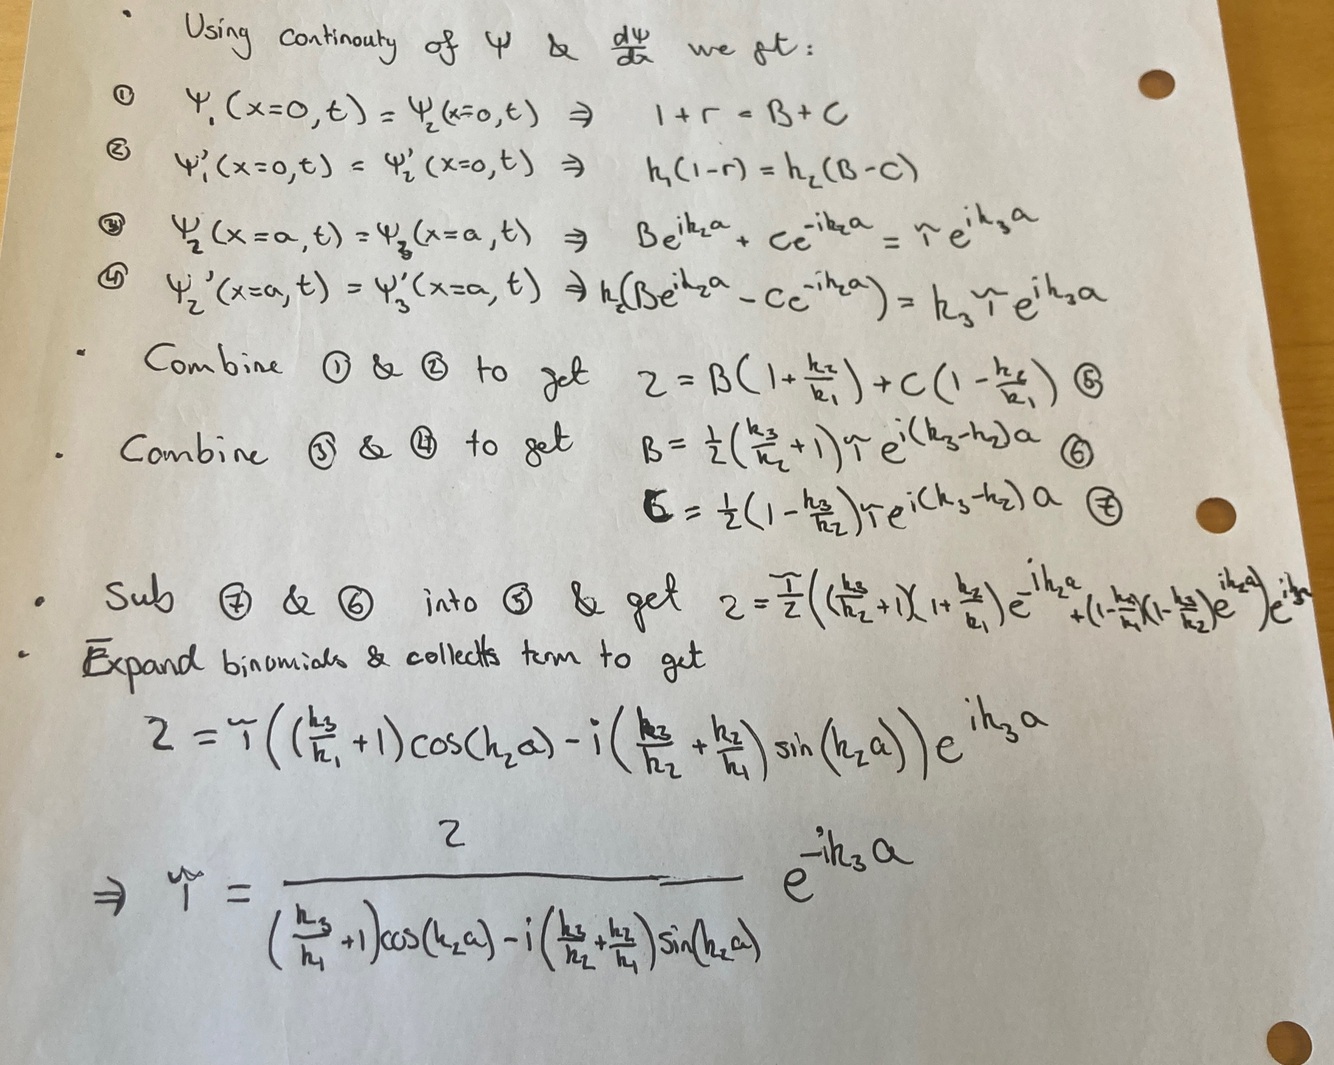 · Using continouty of Ψ & dΨ/dx we gt:
① Ψ₁(x=0,t) = Ψ₂(x=0,t) ⇒ 1+r = B+C
② Ψ₁'(x=0,t) = Ψ₂'(x=0,t) ⇒ k₁(1-r) = k₂(B-C)
③ Ψ₂(x=a,t) = Ψ₃(x=a,t) ⇒ Be^{ik₂a} + Ce^{-ik₂a} = τe^{ik₃a}
④ Ψ₂'(x=a,t) = Ψ₃'(x=a,t) ⇒ k₂(Be^{ik₂a} - Ce^{-ik₂a}) = k₃τe^{ik₃a}
· Combine ① & ② to get 2 = B(1+k₂/k₁) + C(1-k₂/k₁) ⑤
· Combine ③ & ④ to get B = ½(k₃/k₂+1)τe^{i(k₃-k₂)a} ⑥
C = ½(1-k₃/k₂)τe^{i(k₃-k₂)a} ⑦
· Sub ⑦ & ⑥ into ⑤ & get 2 = τ/2((k₃/k₂+1)(1+k₂/k₁)e^{-ik₂a}+(1-k₂/k₁)(1-k₃/k₂)e^{ik₂a})e^{ik₃a}
· Expand binomials & collects term to get
2 = τ((k₃/k₁+1)cos(k₂a) - i(k₃/k₂+k₂/k₁)sin(k₂a))e^{ik₃a}
⇒ τ = 2/((k₃/k₁+1)cos(k₂a) - i(k₃/k₂+k₂/k₁)sin(k₂a)) e^{-ik₃a}